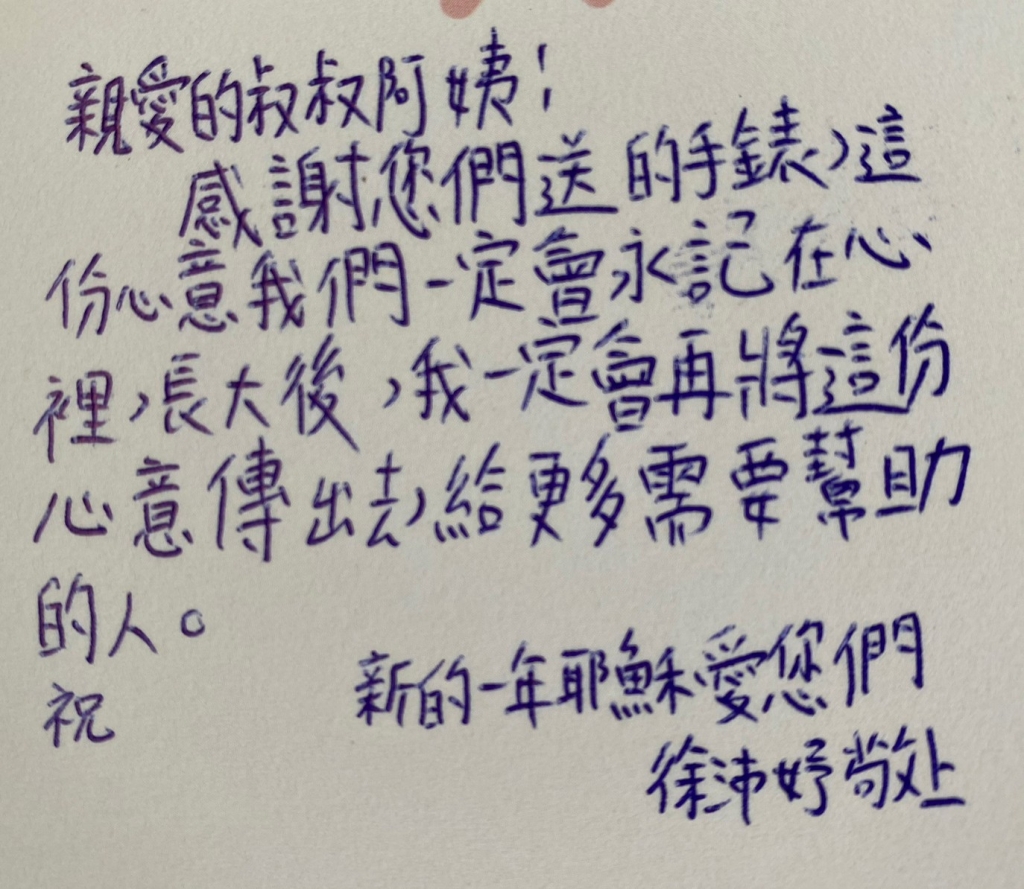 親愛的叔叔阿姨！
感謝您們送的手錶，這
份心意我們一定會永記在心
裡，長大後，我一定會再將這份
心意傳出去，給更多需要幫助
的人。
祝
新的一年耶穌愛您們
徐沛妤敬上